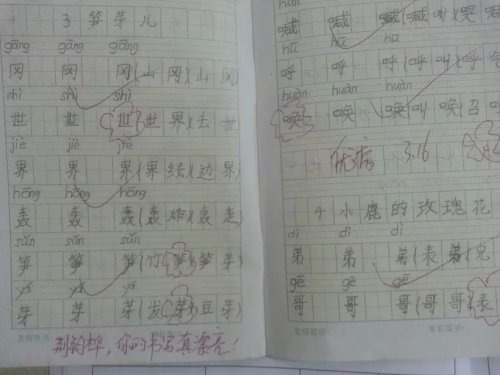 3 笋芽儿
gāng gāng gāng
冈 冈 冈(山冈)(山冈
shì shì shì
世 世 世(世界)(去世
jiè jiè jiè
界 界 界(界线)(边界)
hōng hōng hōng
轰 轰 轰(轰炸)(轰走)
sǔn sǔn sǔn
笋 笋 笋(竹笋)(笋芽)
yá yá yá
芽 芽 芽(发芽)(豆芽)
你的书写真漂亮!
喊 喊 喊(喊叫)(哭喊
hū hū hū
呼 呼 呼(呼叫)(呼
huàn huàn huàn
唤 唤 唤(叫唤)(召
优 3.16
4 小鹿的玫瑰花
dì dì dì
弟 弟 弟(表弟)(兄
gē gē gē
哥 哥 哥(哥哥)(表